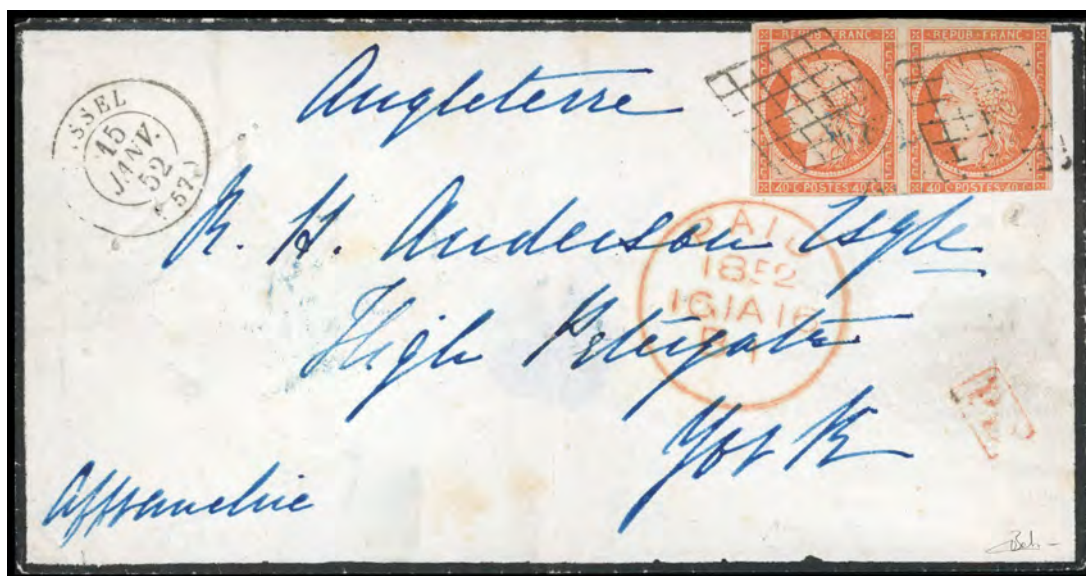 REPUB·FRANC· REPUB·FRANC·
40·C·POSTES·40·C· 40·C·POSTES·40·C·
SSEL
15
JANV.
52
(57)
Angleterre
R. H. Anderson Esqre
High Petergate
York
Affranchie
PAID
1852
16JA16
P.D.